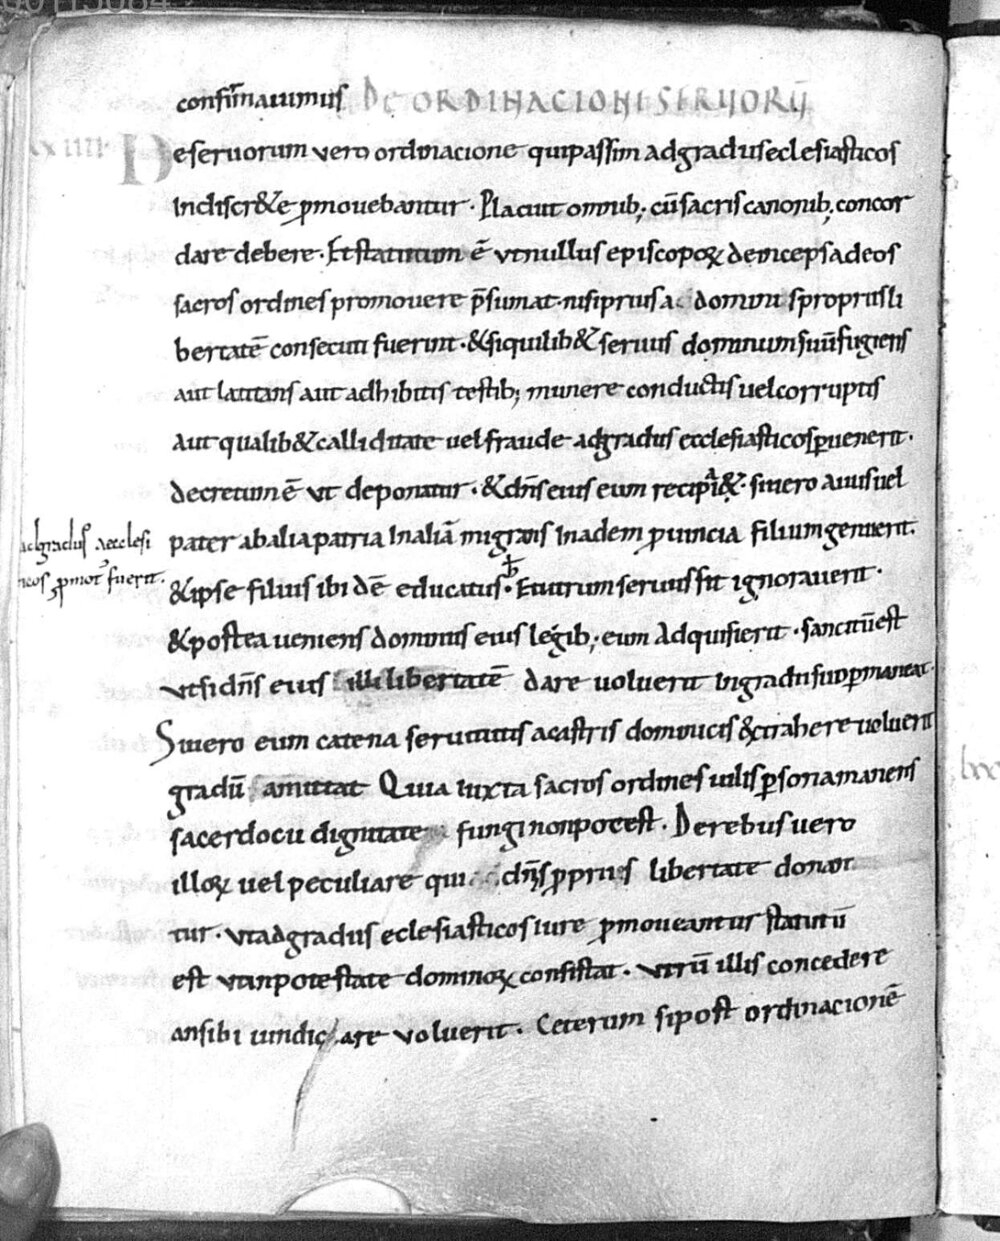 confirmauimus DE ORDINACIONE SERUORŪ
XIIII De seruorum vero ordinacione qui passim ad gradus eclesiasticos
Indiscr&e ꝓmouebantur· Placuit omnib; cū sacris canonib; concor
dare debere· Et statutum ē vt nullus episcopoꝝ deinceps ad eos
sacros ordines promouere p̄sumat· nisi prius a domini s propriis li
bertatē consecuti fuerint· & si quilib& seruus dominum suū fugiens
aut latitans aut adhibitis testib; munere conductis uel corruptis
aut qualib& calliditate uel fraude ad gradus ecclesiasticos ꝑuenerit·
decretum ē vt deponatur· & dn̄s eius eum recipi&· si uero auus uel
pater ab alia patria In aliā migrans In adem ꝓuincia filium genuerit·
& ipse filius ibi dē educatus· Et utrum seruus sit ignorauerit·
ad gradus aecclesi
ticos ꝓmot fuerit·
& postea ueniens dominus eius legib; eum adquisierit· sancitū est
vt si dn̄s eius illi libertatē dare uoluerit In gradu suo ꝑmaneat·
Si uero eum catena seruitutis a castris dominicis &trahere uoluerit
gradū amittat Quia iuxta sacros ordines uilis ꝑsona manens
sacerdocii dignitate fungi non potest· De rebus uero
illoꝝ uel peculiare qui dn̄s ꝓpriis libertate donan
tur· vt ad gradus eclesiasticos iure ꝓmoueantur statutū
est vt in potestate dominoꝝ consistat· vtrū illis concedere
an sibi uindicare voluerit· Ceterum si post ordinacionē